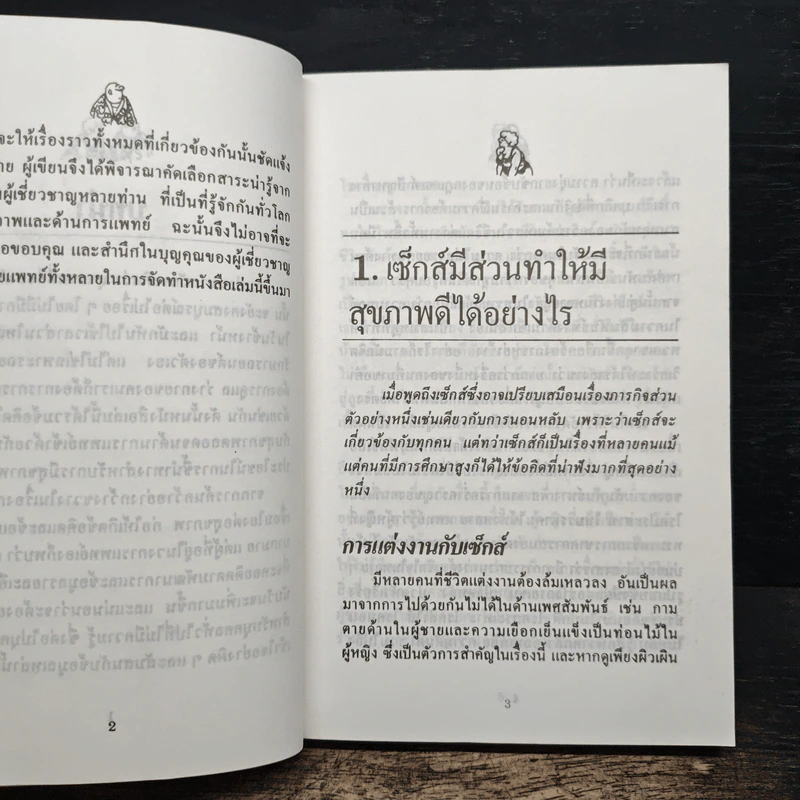 จะให้เรื่องราวทั้งหมดที่เกี่ยวข้องกันนั้นชัดแจ้ง
ผู้เขียนจึงได้พิจารณาคัดเลือกสาระน่ารู้จาก
ผู้เชี่ยวชาญหลายท่าน ที่เป็นที่รู้จักกันทั่วโลก
ภาพและด้านการแพทย์ ฉะนั้นจึงไม่อาจที่จะ
ขอขอบคุณ และสำนึกในบุญคุณของผู้เชี่ยวชาญ
ยแพทย์ทั้งหลายในการจัดทำหนังสือเล่มนี้ขึ้นมา
2
1. เซ็กส์มีส่วนทำให้มี
สุขภาพดีได้อย่างไร
เมื่อพูดถึงเซ็กส์ซึ่งอาจเปรียบเสมือนเรื่องภารกิจส่วน
ตัวอย่างหนึ่งเช่นเดียวกับการนอนหลับ เพราะว่าเซ็กส์จะ
เกี่ยวข้องกับทุกคน แต่ทว่าเซ็กส์ก็เป็นเรื่องที่หลายคนแม้
แต่คนที่มีการศึกษาสูงก็ได้ให้ข้อคิดที่น่าฟังมากที่สุดอย่าง
หนึ่ง
การแต่งงานกับเซ็กส์
มีหลายคนที่ชีวิตแต่งงานต้องล้มเหลวลง อันเป็นผล
มาจากการไปด้วยกันไม่ได้ในด้านเพศสัมพันธ์ เช่น กาม
ตายด้านในผู้ชายและความเยือกเย็นแข็งเป็นท่อนไม้ใน
ผู้หญิง ซึ่งเป็นตัวการสำคัญในเรื่องนี้ และหากดูเพียงผิวเผิน
3